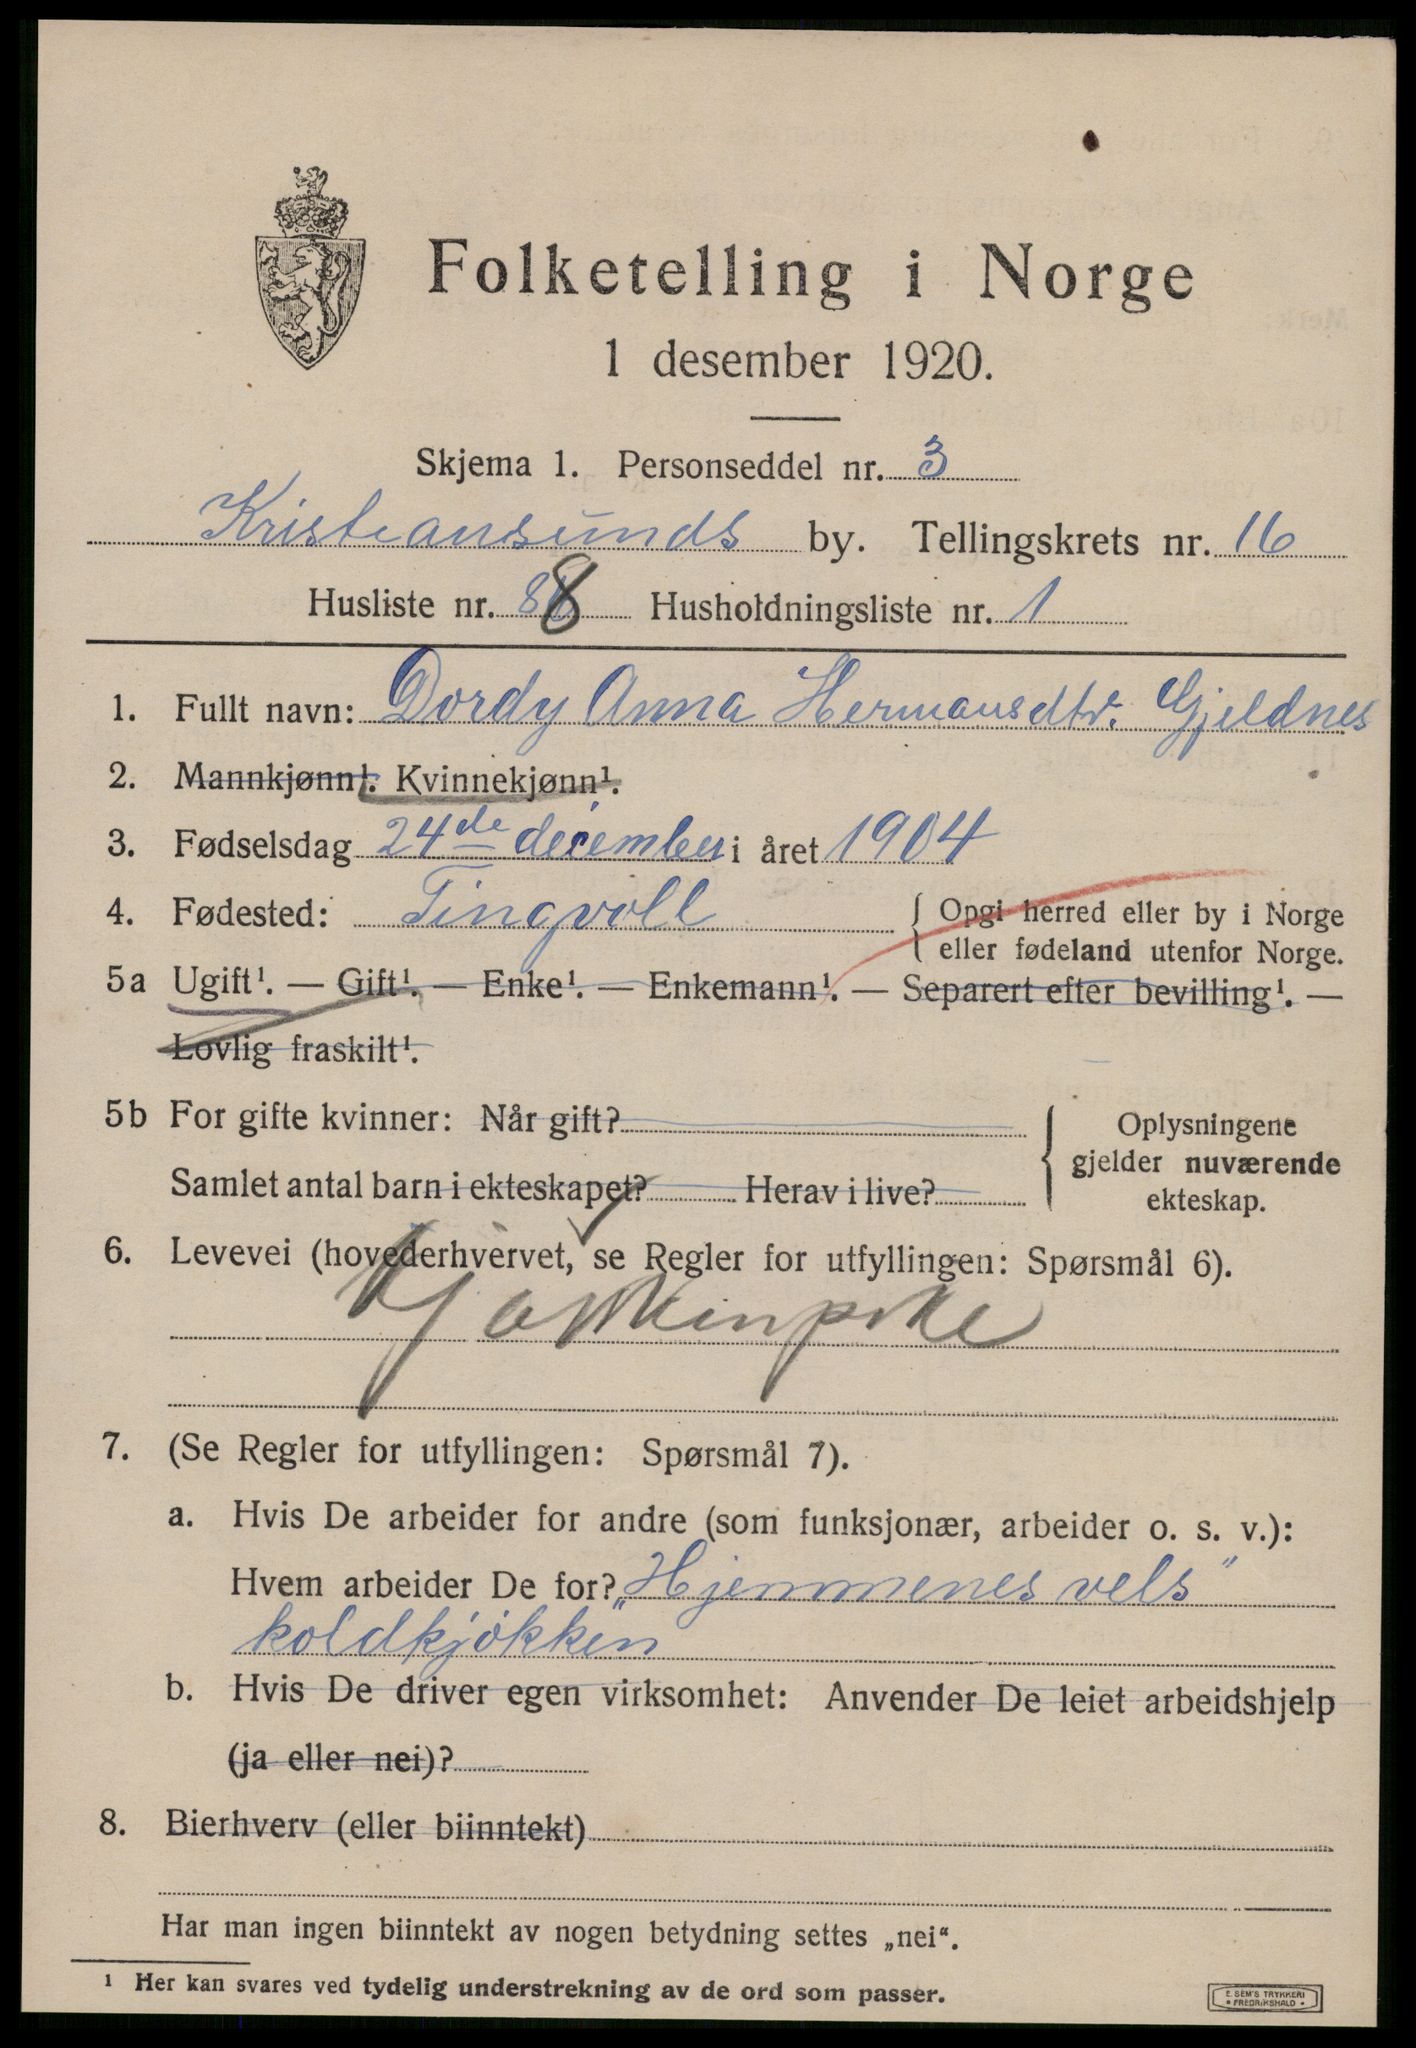 Folketelling i Norge
1 desember 1920.
Skjema 1. Personseddel nr. 3
Kristiansunds by. Tellingskrets nr. 16
Husliste nr. 8 Husholdningsliste nr. 1
1. Fullt navn: Dordy Anna Hermansdtr. Gjeldnes
2. Mannkjønn¹. Kvinnekjønn¹.
3. Fødselsdag 24de december i året 1904
4. Fødested: Tingvoll { Opgi herred eller by i Norge
eller fødeland utenfor Norge.
5a Ugift¹. — Gift¹. — Enke¹. — Enkemann¹. — Separert efter bevilling¹. —
Lovlig fraskilt¹.
5b For gifte kvinner: Når gift? { Oplysningene
gjelder nuværende
ekteskap.
Samlet antal barn i ekteskapet? Herav i live?
6. Levevei (hovederhvervet, se Regler for utfyllingen: Spørsmål 6).
7. (Se Regler for utfyllingen: Spørsmål 7).
a. Hvis De arbeider for andre (som funksjonær, arbeider o. s. v.):
Hvem arbeider De for? „Hjemmenes vels"
koldkjøkken
b. Hvis De driver egen virksomhet: Anvender De leiet arbeidshjelp
(ja eller nei)?
8. Bierhverv (eller biinntekt)
Har man ingen biinntekt av nogen betydning settes „nei“.
¹ Her kan svares ved tydelig understrekning av de ord som passer.
E. SEM'S TRYKKERI
• FREDRIKSHALD •